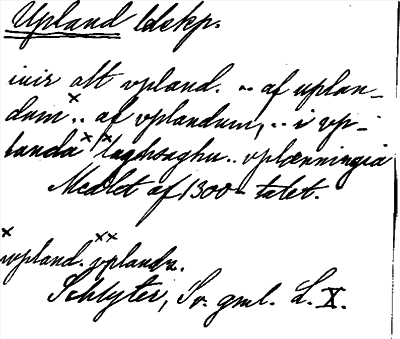 Upland ldskp.
ivir alt vpland. .. af uplan-
dum x .. af vplandum, .. i vp-
landa xx laghsaghu .. vplænningia
Medlet af 1300-talet.
x wpland. xx vplandz.
Schlyter, Sv. gml. L. X.